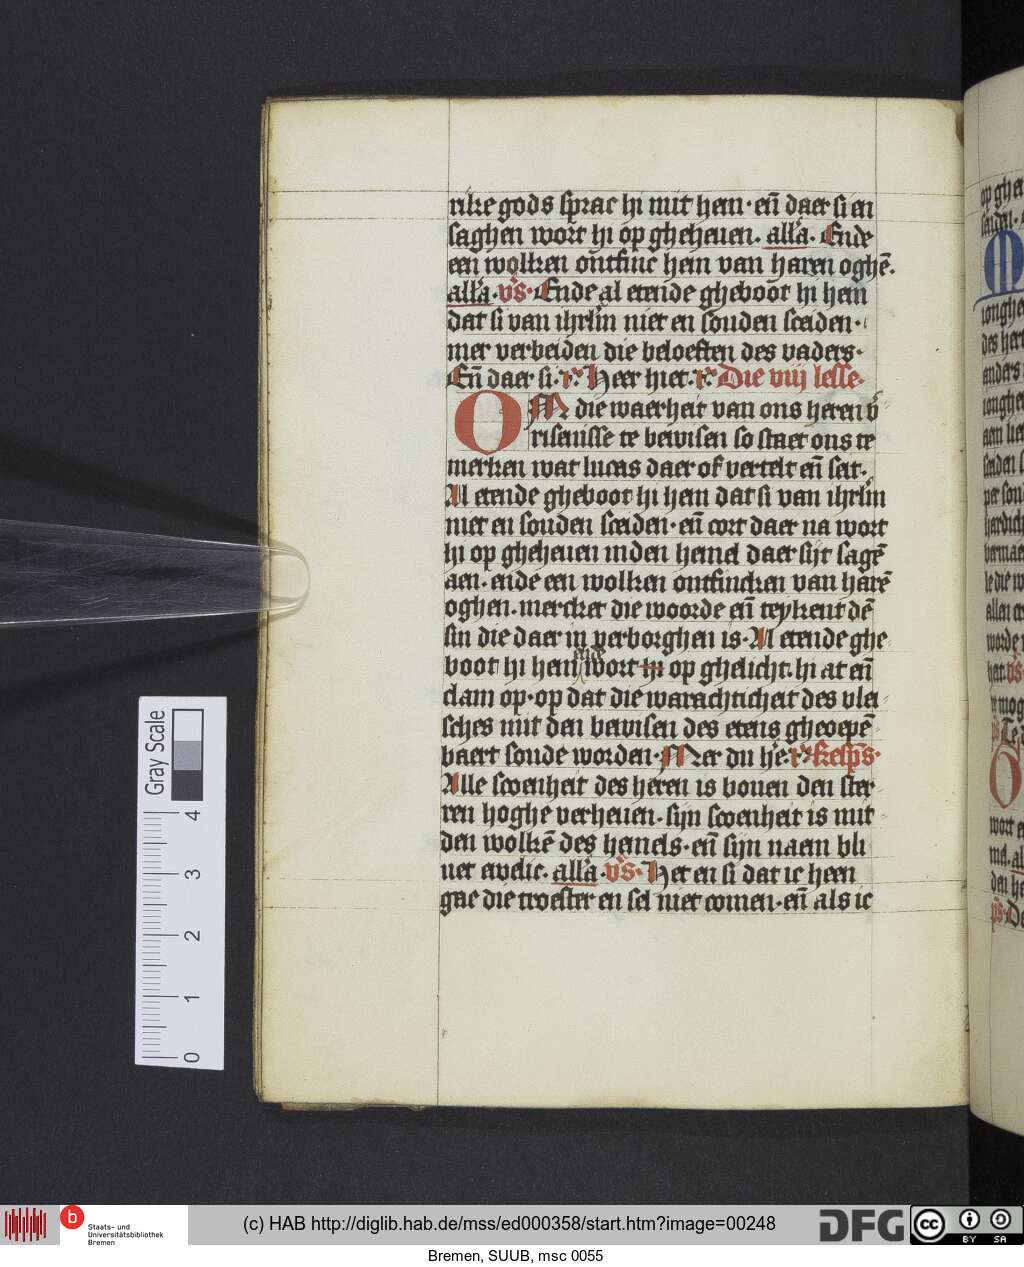 rike gods sprac hi mit hem· eñ daer si en
saghen wort hi op gheheuen. all'a. Ende
een wolken ontfinc hem van haren oghē.
all'a. v̾s. Ende al etende gheboot hi hem
dat si van ihrl'm niet en souden sceiden·
mer verbeiden die beloeften des vaders·
Eñ daer si. r̾. Heer hiet. r̾. Die viij lesse·
OM die waerheit van ons heren v̾
risenisse te bewisen so staet ons te
merken wat lucas daer of vertelt eñ seit.
Al etende gheboot hi hem dat si van ihrl'm
niet en souden sceiden· eñ cort daer na wort
hi op gheheuen inden hemel daer sijt sagē
aen. ende een wolken ontfincken van harē
oghen. mercket die woorde eñ teykent dē
sin die daer in verborghen is. Al etende ghe
boot hi hem ende wort hi op ghelicht. hi at eñ
clam op. op dat die warachticheit des vlei
sches mit den bewisen des etens gheoepē
baert soude worden. Mer du h'e. r̾. kelp̄s·
Alle scoenheit des heren is bouen den ster
ren hoghe verheuen. sijn scoenheit is mit
den wolkē des hemels. eñ sijn naem bli
uet ewelic. all'a. v̾s. Het en si dat ic heen
gae die troester en sel niet comen· eñ als ic
op ghe
M
des
anders
O
Gray Scale
4
3
2
1
0
b
Staats- und
Universitätsbibliothek
Bremen
(c) HAB http://diglib.hab.de/mss/ed000358/start.htm?image=00248
DFG
cc BY SA
Bremen, SUUB, msc 0055